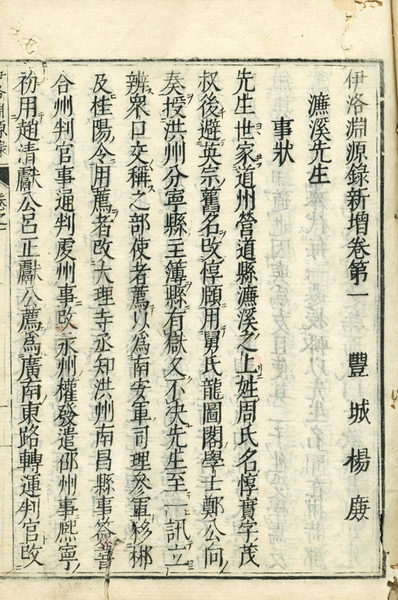 伊洛淵源錄新增卷第一　豐城楊廉
濂溪先生
事狀
先生世家道州營道縣濂溪之上姓周氏名惇實字茂
叔後避英宗舊名改惇頤用舅氏龍圖閣學士鄭公向
奏授洪州分寧縣主簿縣有獄久不決先生至一訊立
辨衆口交稱之部使者薦以爲南安軍司理參軍移郴
及桂陽令用薦者改大理寺丞知洪州南昌縣事簽書
合州判官事通判䖍州事改永州權發遣邵州事熙寧
初用趙清獻公呂正獻公薦爲廣南東路轉運判官改